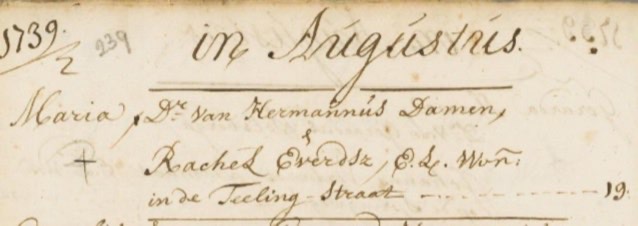 1739.
2
239
in Augústus.
Maria, Dr. van Hermannús Damen,
&
† Rachel Everdsz, E.L. Won:
in de Teeling-Straat — 19.